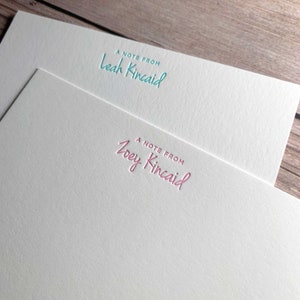 A NOTE FROM
Leah Kincaid
A NOTE FROM
Zoey Kincaid